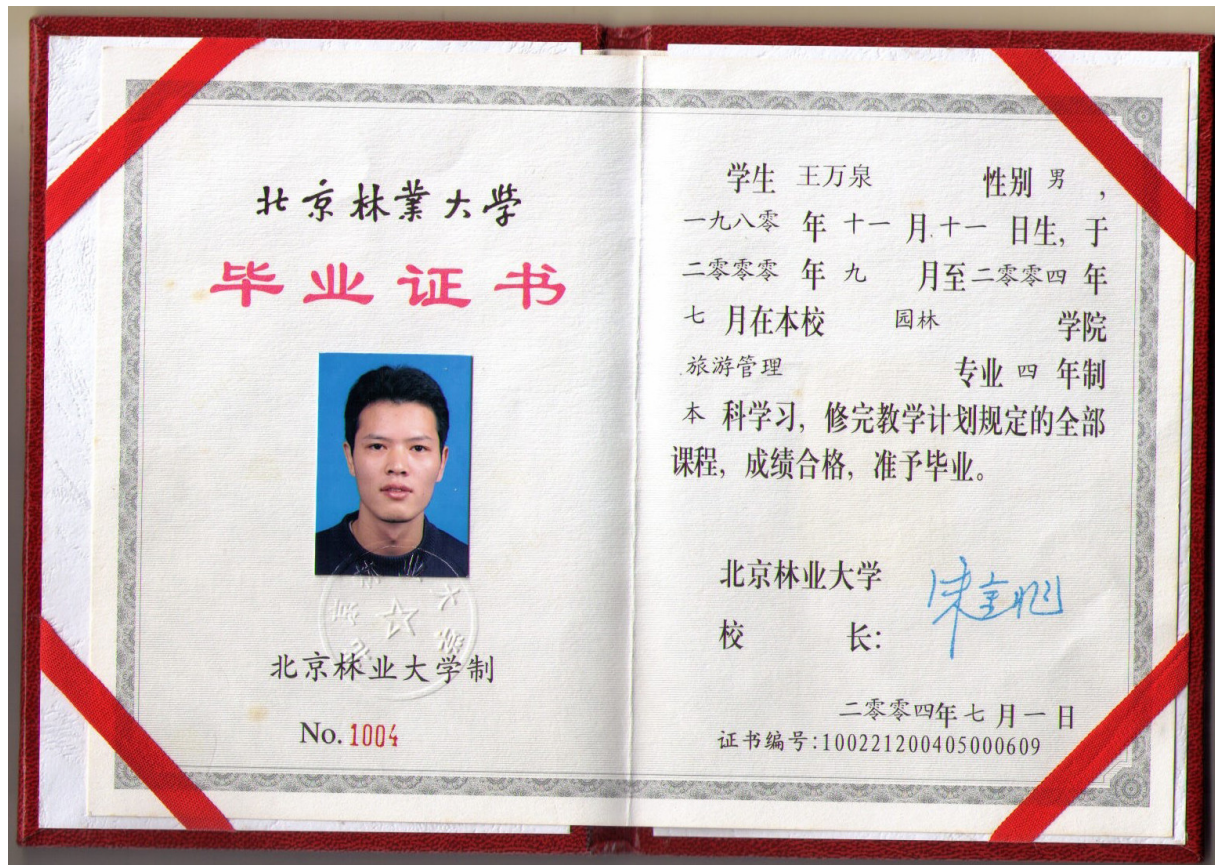 北京林業大学
毕业证书
北京林业大学
北京林业大学制
No. 1004
学生 王万泉 性别 男 ,
一九八零 年 十一 月 十一 日生, 于
二零零零 年 九 月至 二零零四 年
七 月在本校 园林 学院
旅游管理 专业 四 年制
本 科学习, 修完教学计划规定的全部
课程, 成绩合格, 准予毕业。
北京林业大学
校 长:
二零零四年 七 月 一 日
证书编号:100221200405000609